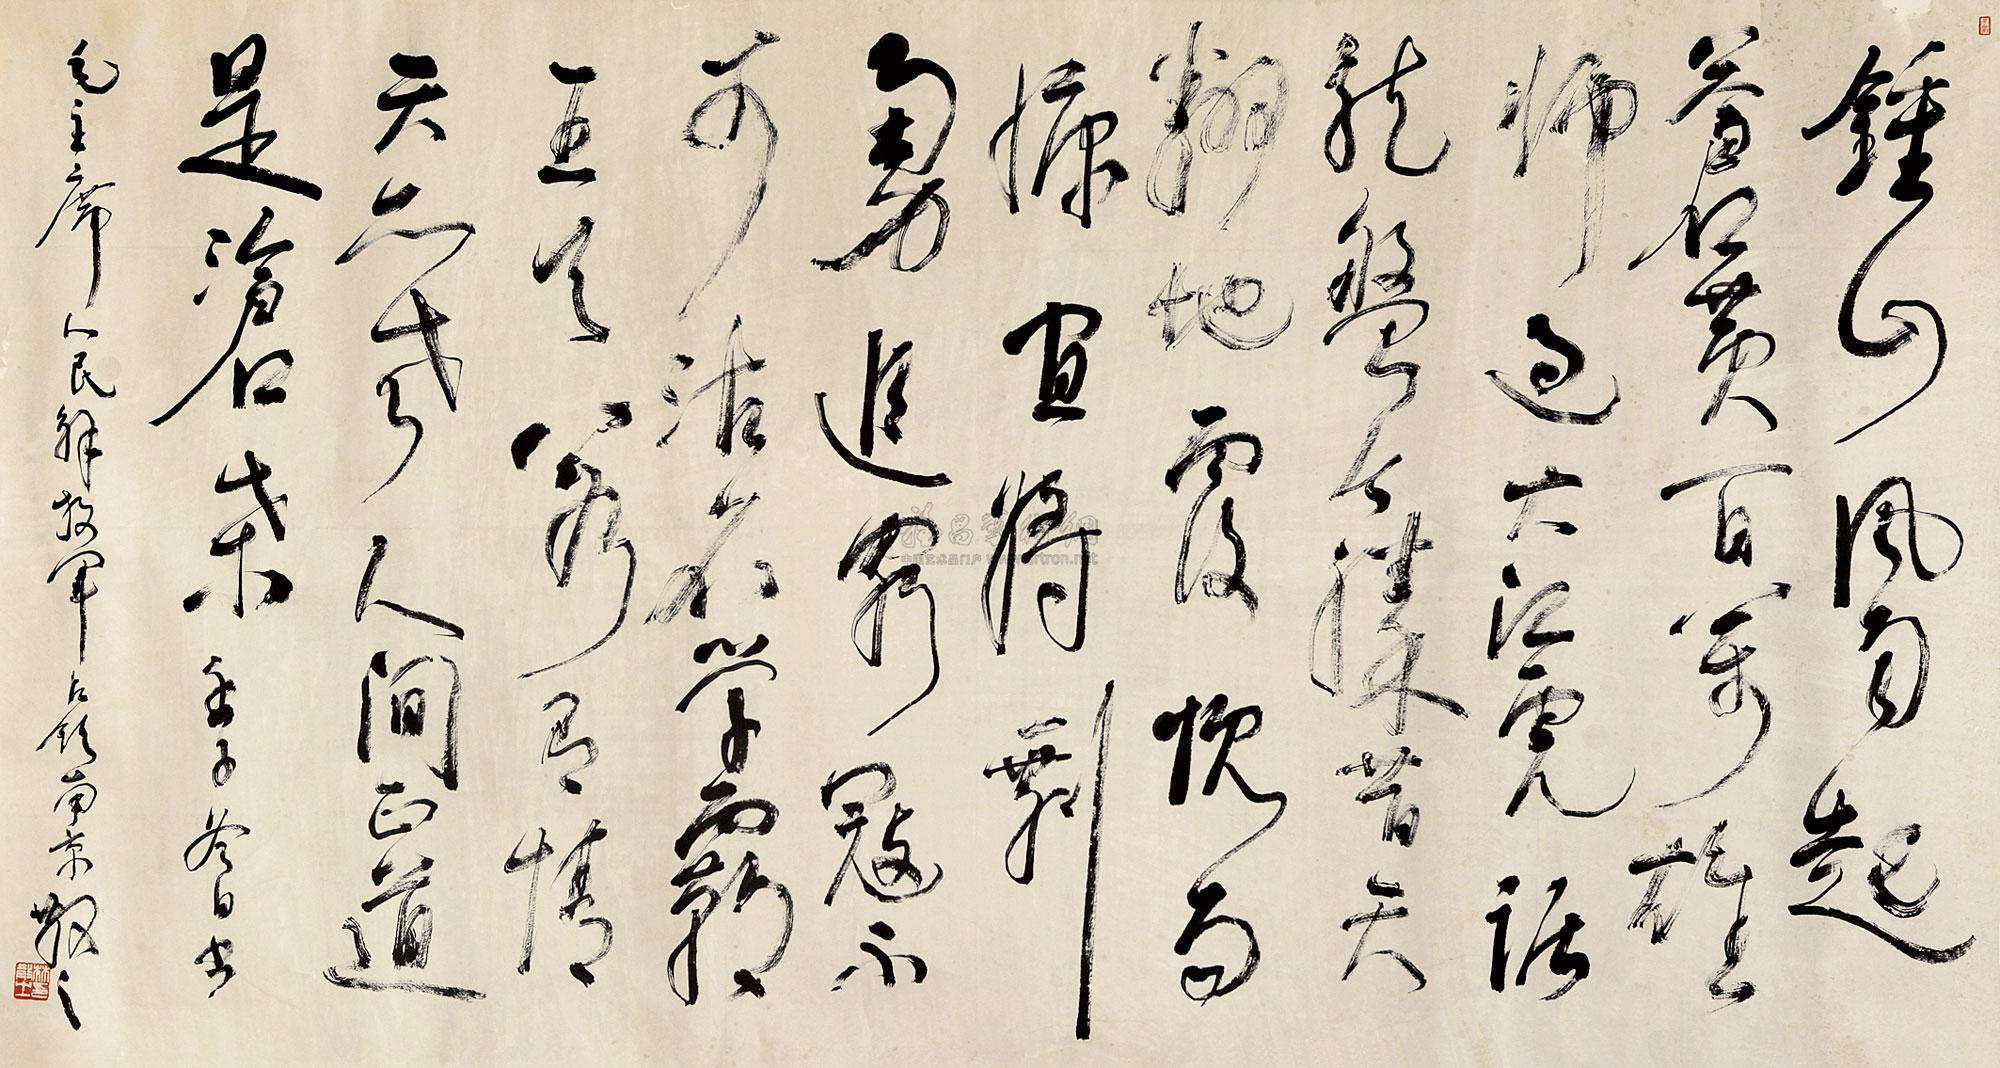 鍾山風雨起
蒼黃百萬雄
師過大江虎踞
龍盤今勝昔天
翻地覆慨而
慷宜將剩
勇追窮寇不
可沽名學霸
王天若有情
天亦老人間正道
是滄桑 壬子日書
毛主席人民解放軍占領南京 散之